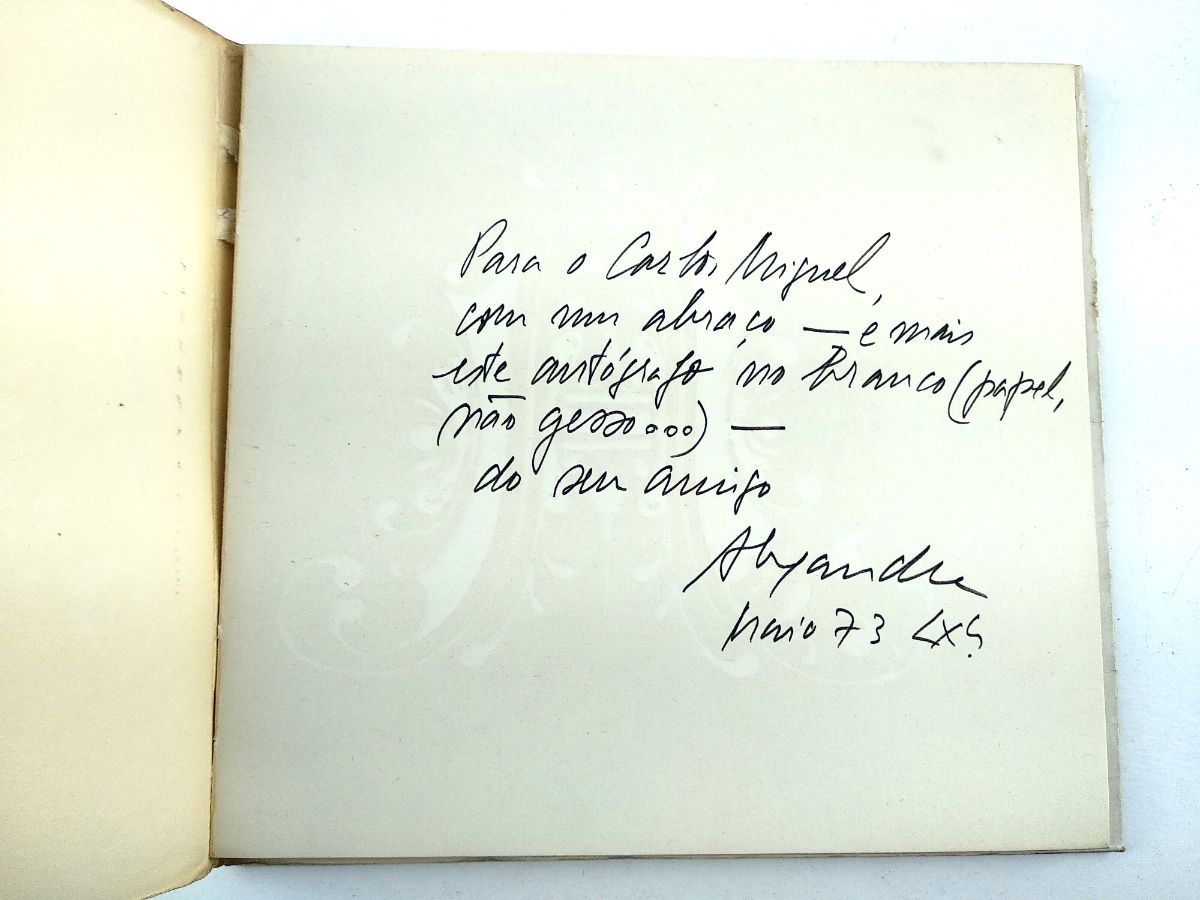 Para o Carlos Miguel,
com um abraço — e mais
este autógrafo no branco (papel,
não gesso...) —
do seu amigo
Alexandre
Maio 73 Lxª